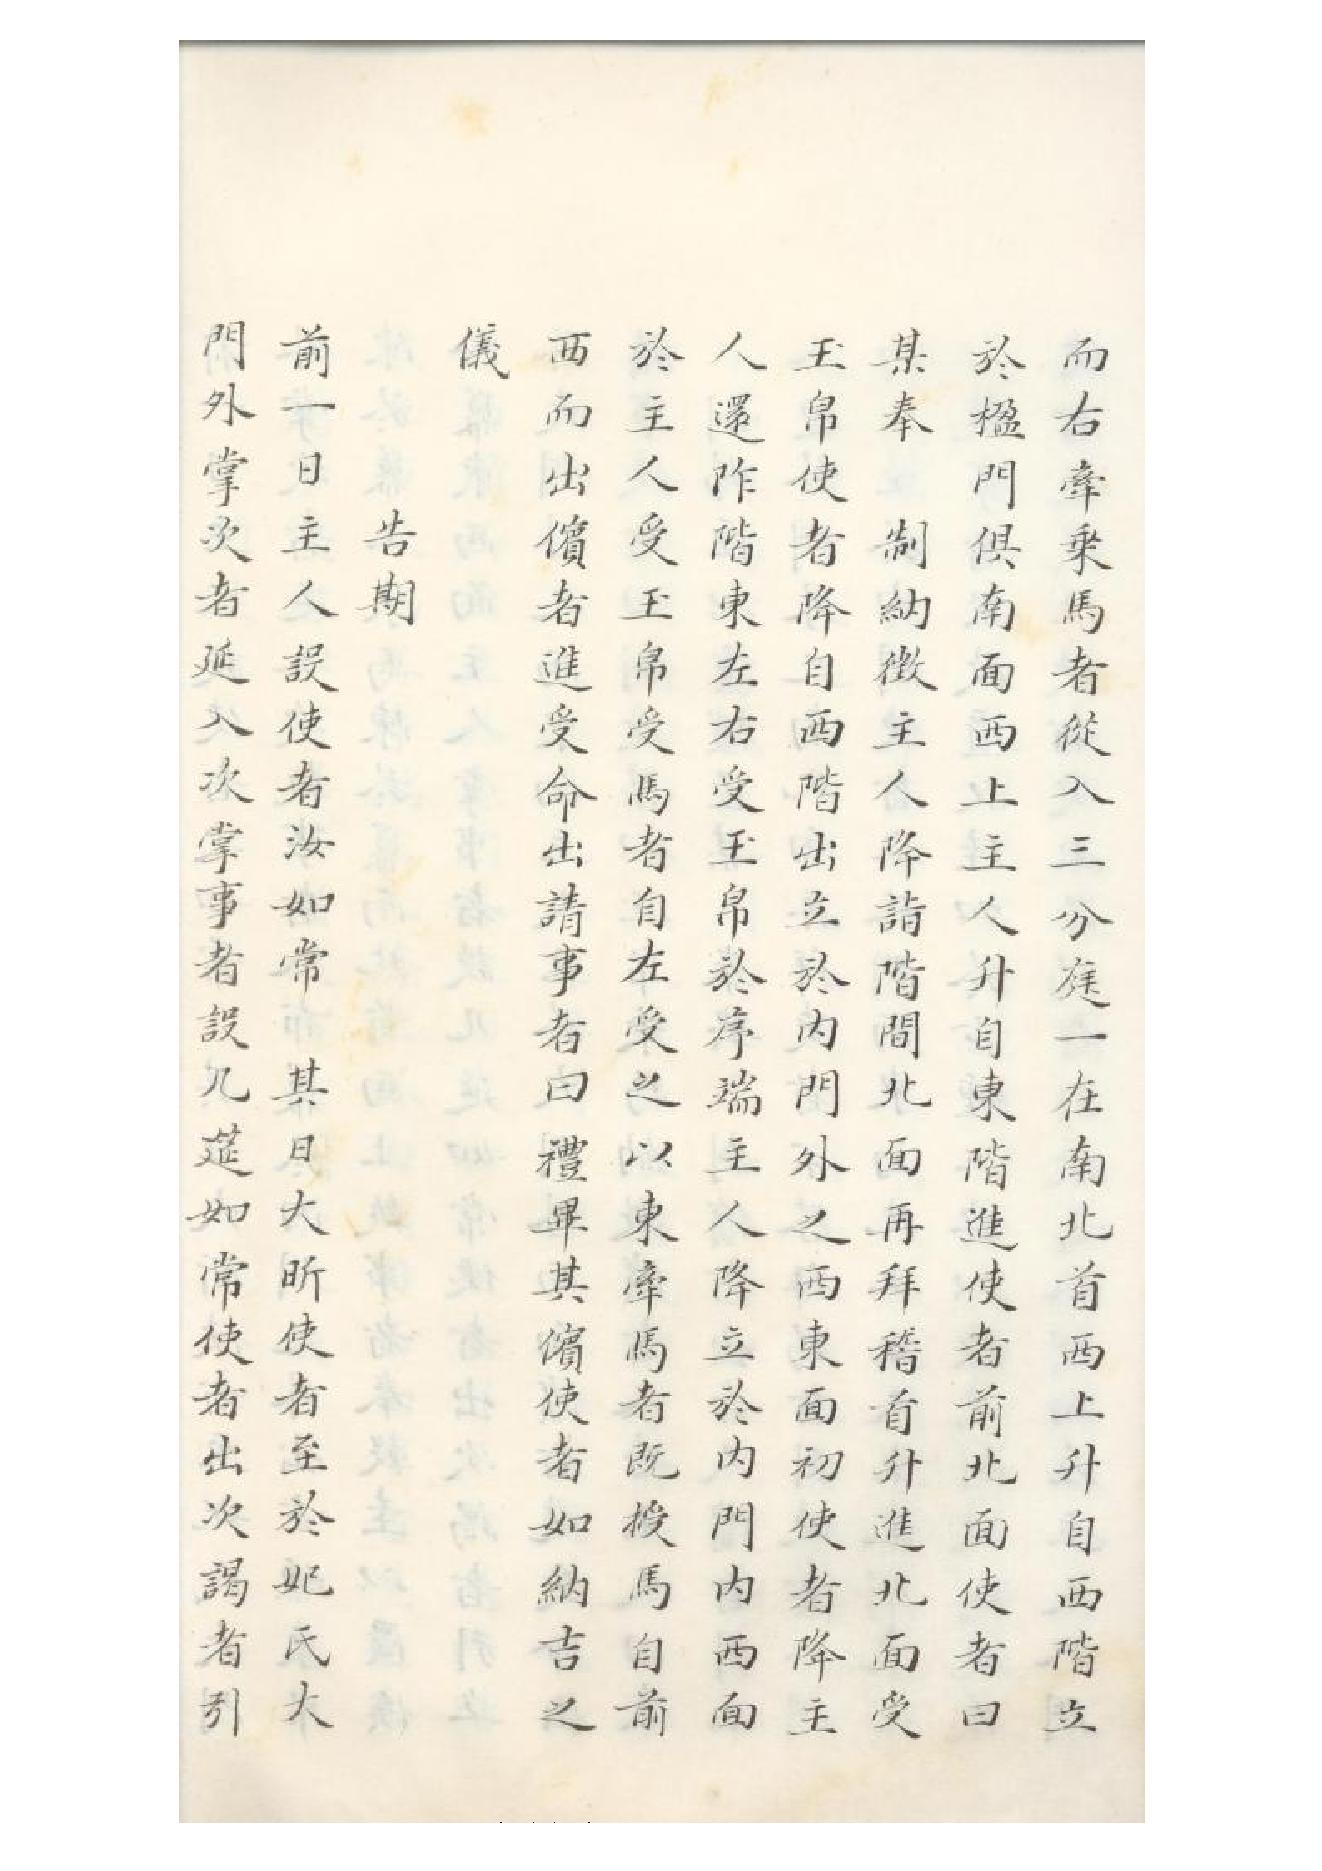 而右牽乗馬者從入三分庭一在南北首西上升自西階立
於楹門俱南面西上主人升自東階進使者前北面使者曰
某奉　制納徴主人降詣階間北面再拜稽首升進北面受
玉帛使者降自西階出立於内門外之西東面初使者降主
人還阼階東左右受玉帛於序端主人降立於内門内西面
於主人受玉帛受馬者自左受之以東牽馬者既授馬自前
西而出儐者進受命出請事者曰禮畢其儐使者如納吉之
儀
告期
前一日主人設使者汝如常　其日大昕使者至於妃氏大
門外掌次者延入次掌事者設几筵如常使者出次謁者引